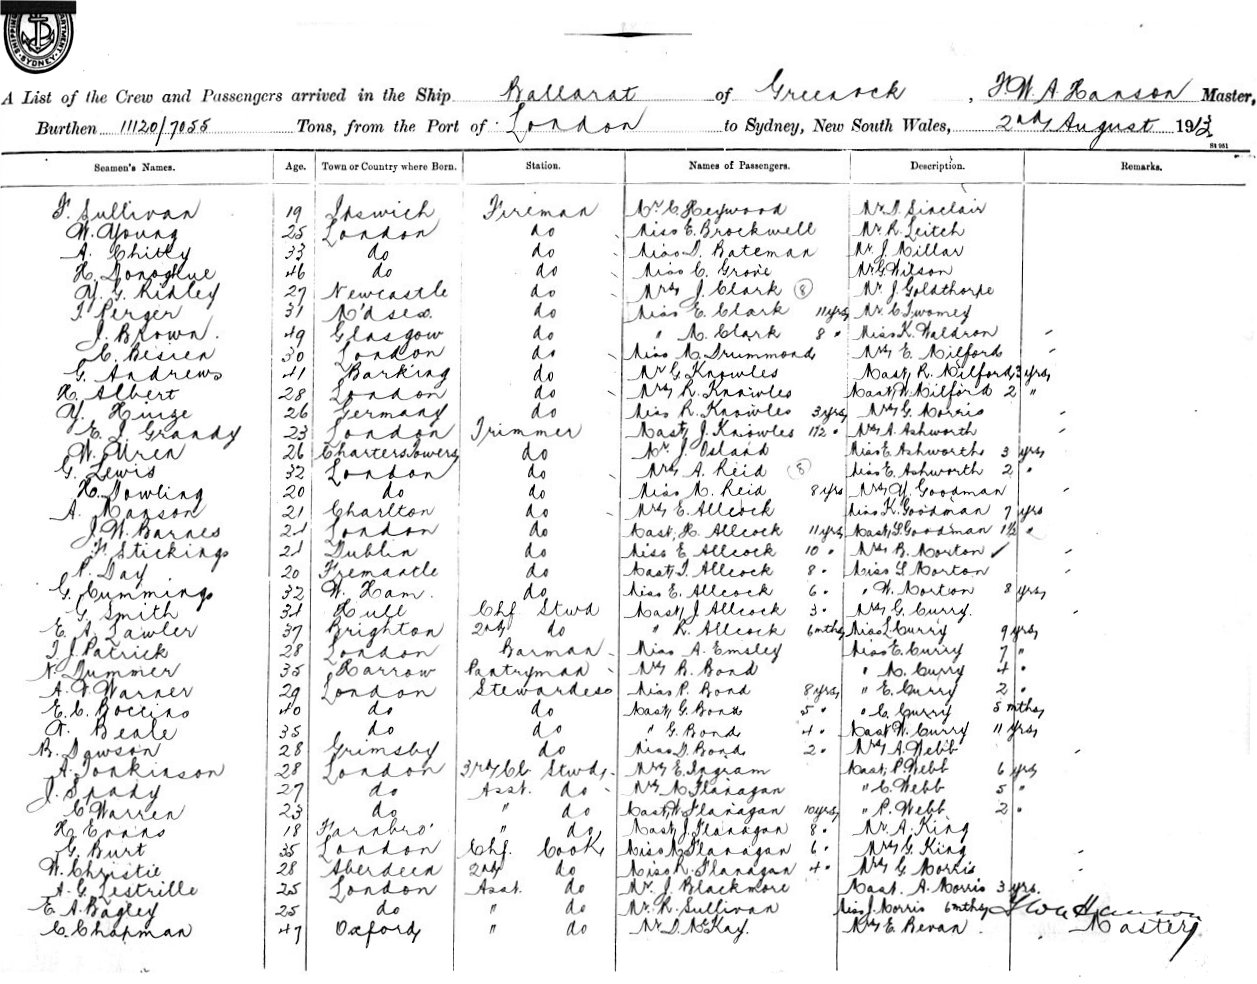 SHIPPING DEPARTMENT SYDNEY
A List of the Crew and Passengers arrived in the Ship Ballarat of Greenock, F W A Hanson Master,
Burthen 11120/7055 Tons, from the Port of London to Sydney, New South Wales, 2nd August 1913
St 951
Seamen's Names. Age. Town or Country where Born. Station. Names of Passengers. Description. Remarks.
F. Sullivan 19 Ipswich Fireman Mr C Heywood Mr D. Sinclair
W. Young 25 London do Miss E. Brockwell Mr R. Leitch
A. Chitty 33 do do Miss D. Bateman Mr J. Millar
H. Donoghue 46 do do Miss C. Grove Mr G Wilson
G. Ridley 27 Newcastle do Mrs J. Clark (8) Mr J. Goldthorpe
T. Perger 31 M'dsex. do Miss E. Clark 11 yrs Mr C Twomey
J. Brown. 49 Glasgow do " M. Clark 8 " Miss K. Waldron
C. Bisien 30 London do Miss M. Drummond Mrs E. Milford
G. Andrews 41 Barking do Mr G Knowles Mast R. Milford 3 yrs
H. Albert 28 London do Mrs R. Knowles Mast W. Milford 2 "
Huige 26 Germany do Miss R. Knowles 3 yrs Mrs G Morris
E. J. Grandy 23 London Trimmer Mast J. Knowles 1 1/2 " Mrs A. Ashworth
W. Uren 26 Charters Towers do Mr J. Osland Miss E. Ashworth 3 yrs
G. Lewis 32 London do Mrs A. Reid (8) Miss E. Ashworth 2 "
H. Dowling 20 do do Miss M. Reid 8 yrs Mrs Goodman
A. Manson 21 Charlton do Mrs E. Allcock Miss K. Goodman 7 yrs
J. W. Barnes 21 London do Mast H. Allcock 11 yrs Mast S. Goodman 1 1/2 "
F. Stickings 21 Dublin do Miss E Allcock 10 " Mrs B. Morton ✓
P. Day 20 Fremantle do Mast T. Allcock 8 " Miss L Morton
G. Cummings 32 W. Ham. do Miss E. Allcock 6 " " W. Morton 8 yrs
G. Smith 34 Hull Chf Stwd Mast J Allcock 3 " Mrs G. Curry.
E. A. Lawler 37 Brighton 2nd do " R. Allcock 6 mths Miss L. Curry 9 yrs
T. J. Patrick 28 London Barman Miss A. Emsley Miss E. Curry 7 "
N. Dummer 35 Harrow Pantryman Mrs R. Bond " M. Curry 4 "
A. F. Warner 29 London Stewardess Miss P. Bond 8 yrs " E. Curry 2 "
E. C. Boccino 40 do do Mast G. Bond 5 " " C. Curry 5 mths
A. Beale 35 do do " G Bond 4 " Mast W. Curry 11 yrs
B. Dawson 28 Grimsby do Miss D. Bond 2 " Mrs A. Webb
A. Tonkinson 28 London 3rd Cl. Stwd Mrs E. Ingram Mast P. Webb 6 yrs
J. Spady 27 do Asst. do Mrs M Flanagan " C. Webb 5 "
C Warren 23 do " do Mast W Flanagan 10 yrs " P. Webb 2 "
H. Evans 18 Farnbro' " do Mast J. Flanagan 8 " Mr A. King
G. Burt 35 London Chf. Cook Miss M Flanagan 6 " Mrs G. King
W. Christie 28 Aberdeen 2nd do Miss K. Flanagan 4 " Mrs G. Morris
A. G. Lestrille 25 London Asst. do Mr J. Blackmore Mast A. Morris 3 yrs.
E. A. Bagley 25 do " do Mr R. Sullivan Miss J. Morris 6 mths F W A Hanson
C. Chapman 47 Oxford " do Mr D. McKay. Mrs E. Bevan. Master